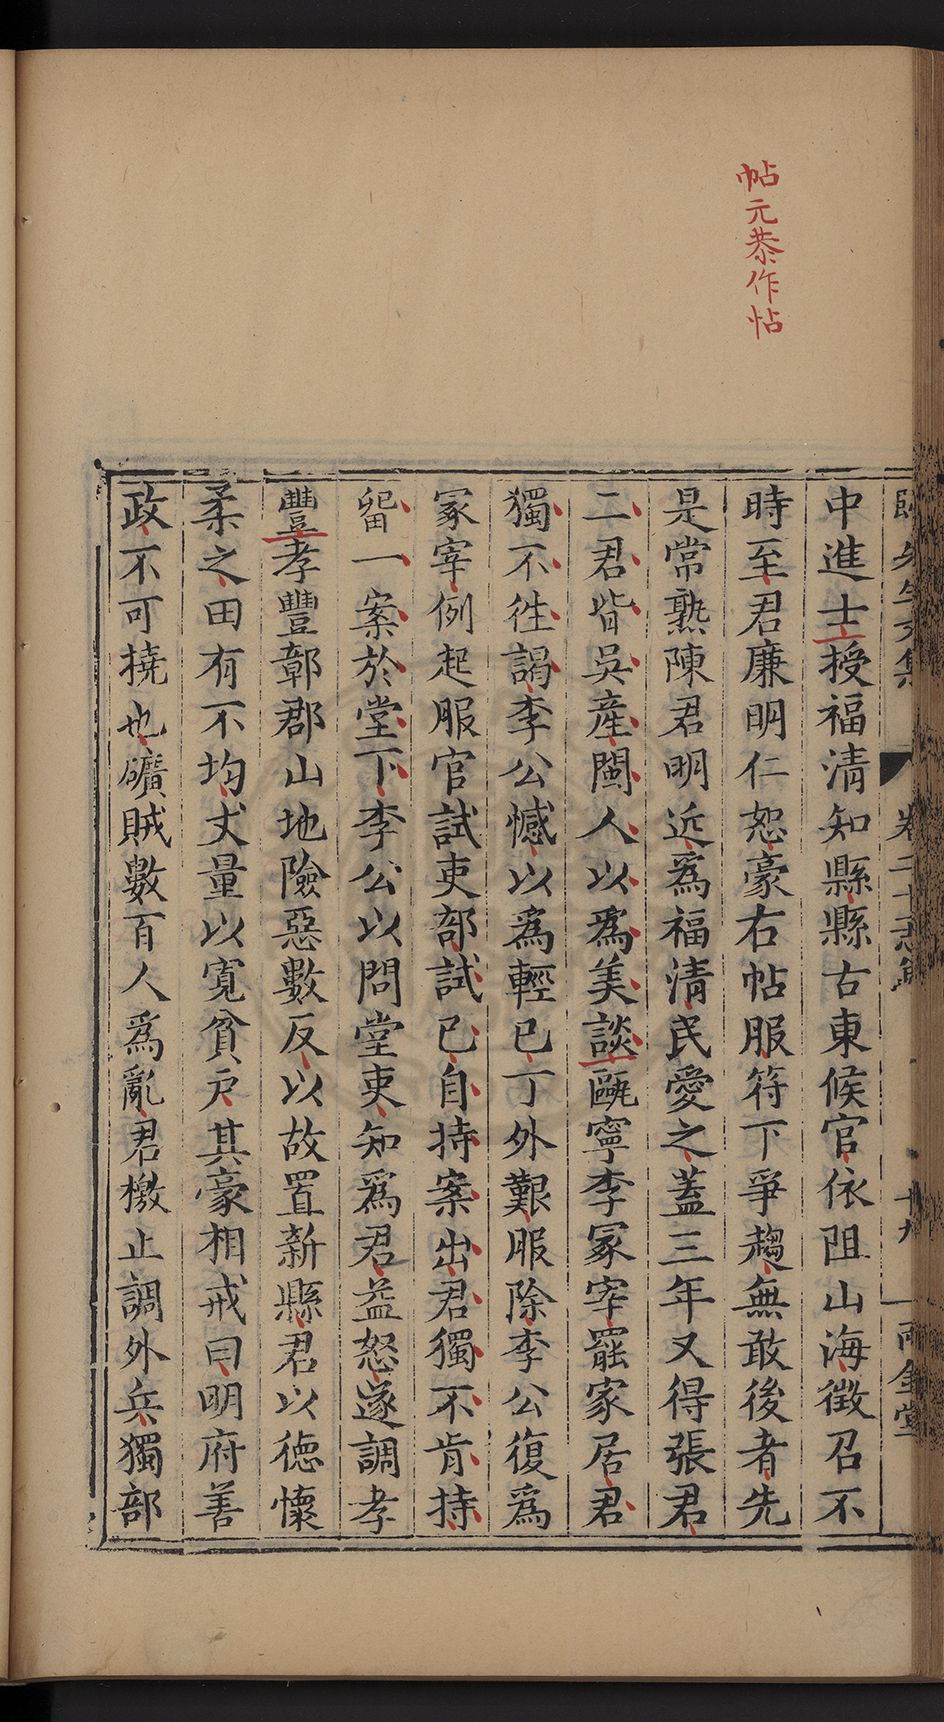 帖元恭作怗
中進士授福清知縣縣古東候官依阻山海徵召不
時至君廉明仁恕豪右帖服符下爭趨無敢後者先
是常熟陳君明近爲福清民愛之葢三年又得張君
二君皆吳產閩人以爲美談甌寧李冢宰罷家居君
獨不徃謁李公憾以爲輕已丁外艱服除李公復爲
冢宰例起服官試吏部試已自持案出君獨不肯持
畱一案於堂下李公以問堂吏知爲君益怒遂調孝
豐孝豐鄣郡山地險惡數反以故置新縣君以德懷
柔之田有不均丈量以寬貧戶其豪相戒曰明府善
政不可撓也礦賊數百人爲亂君檄止調外兵獨部
卷二十志銘
十九
雨金堂